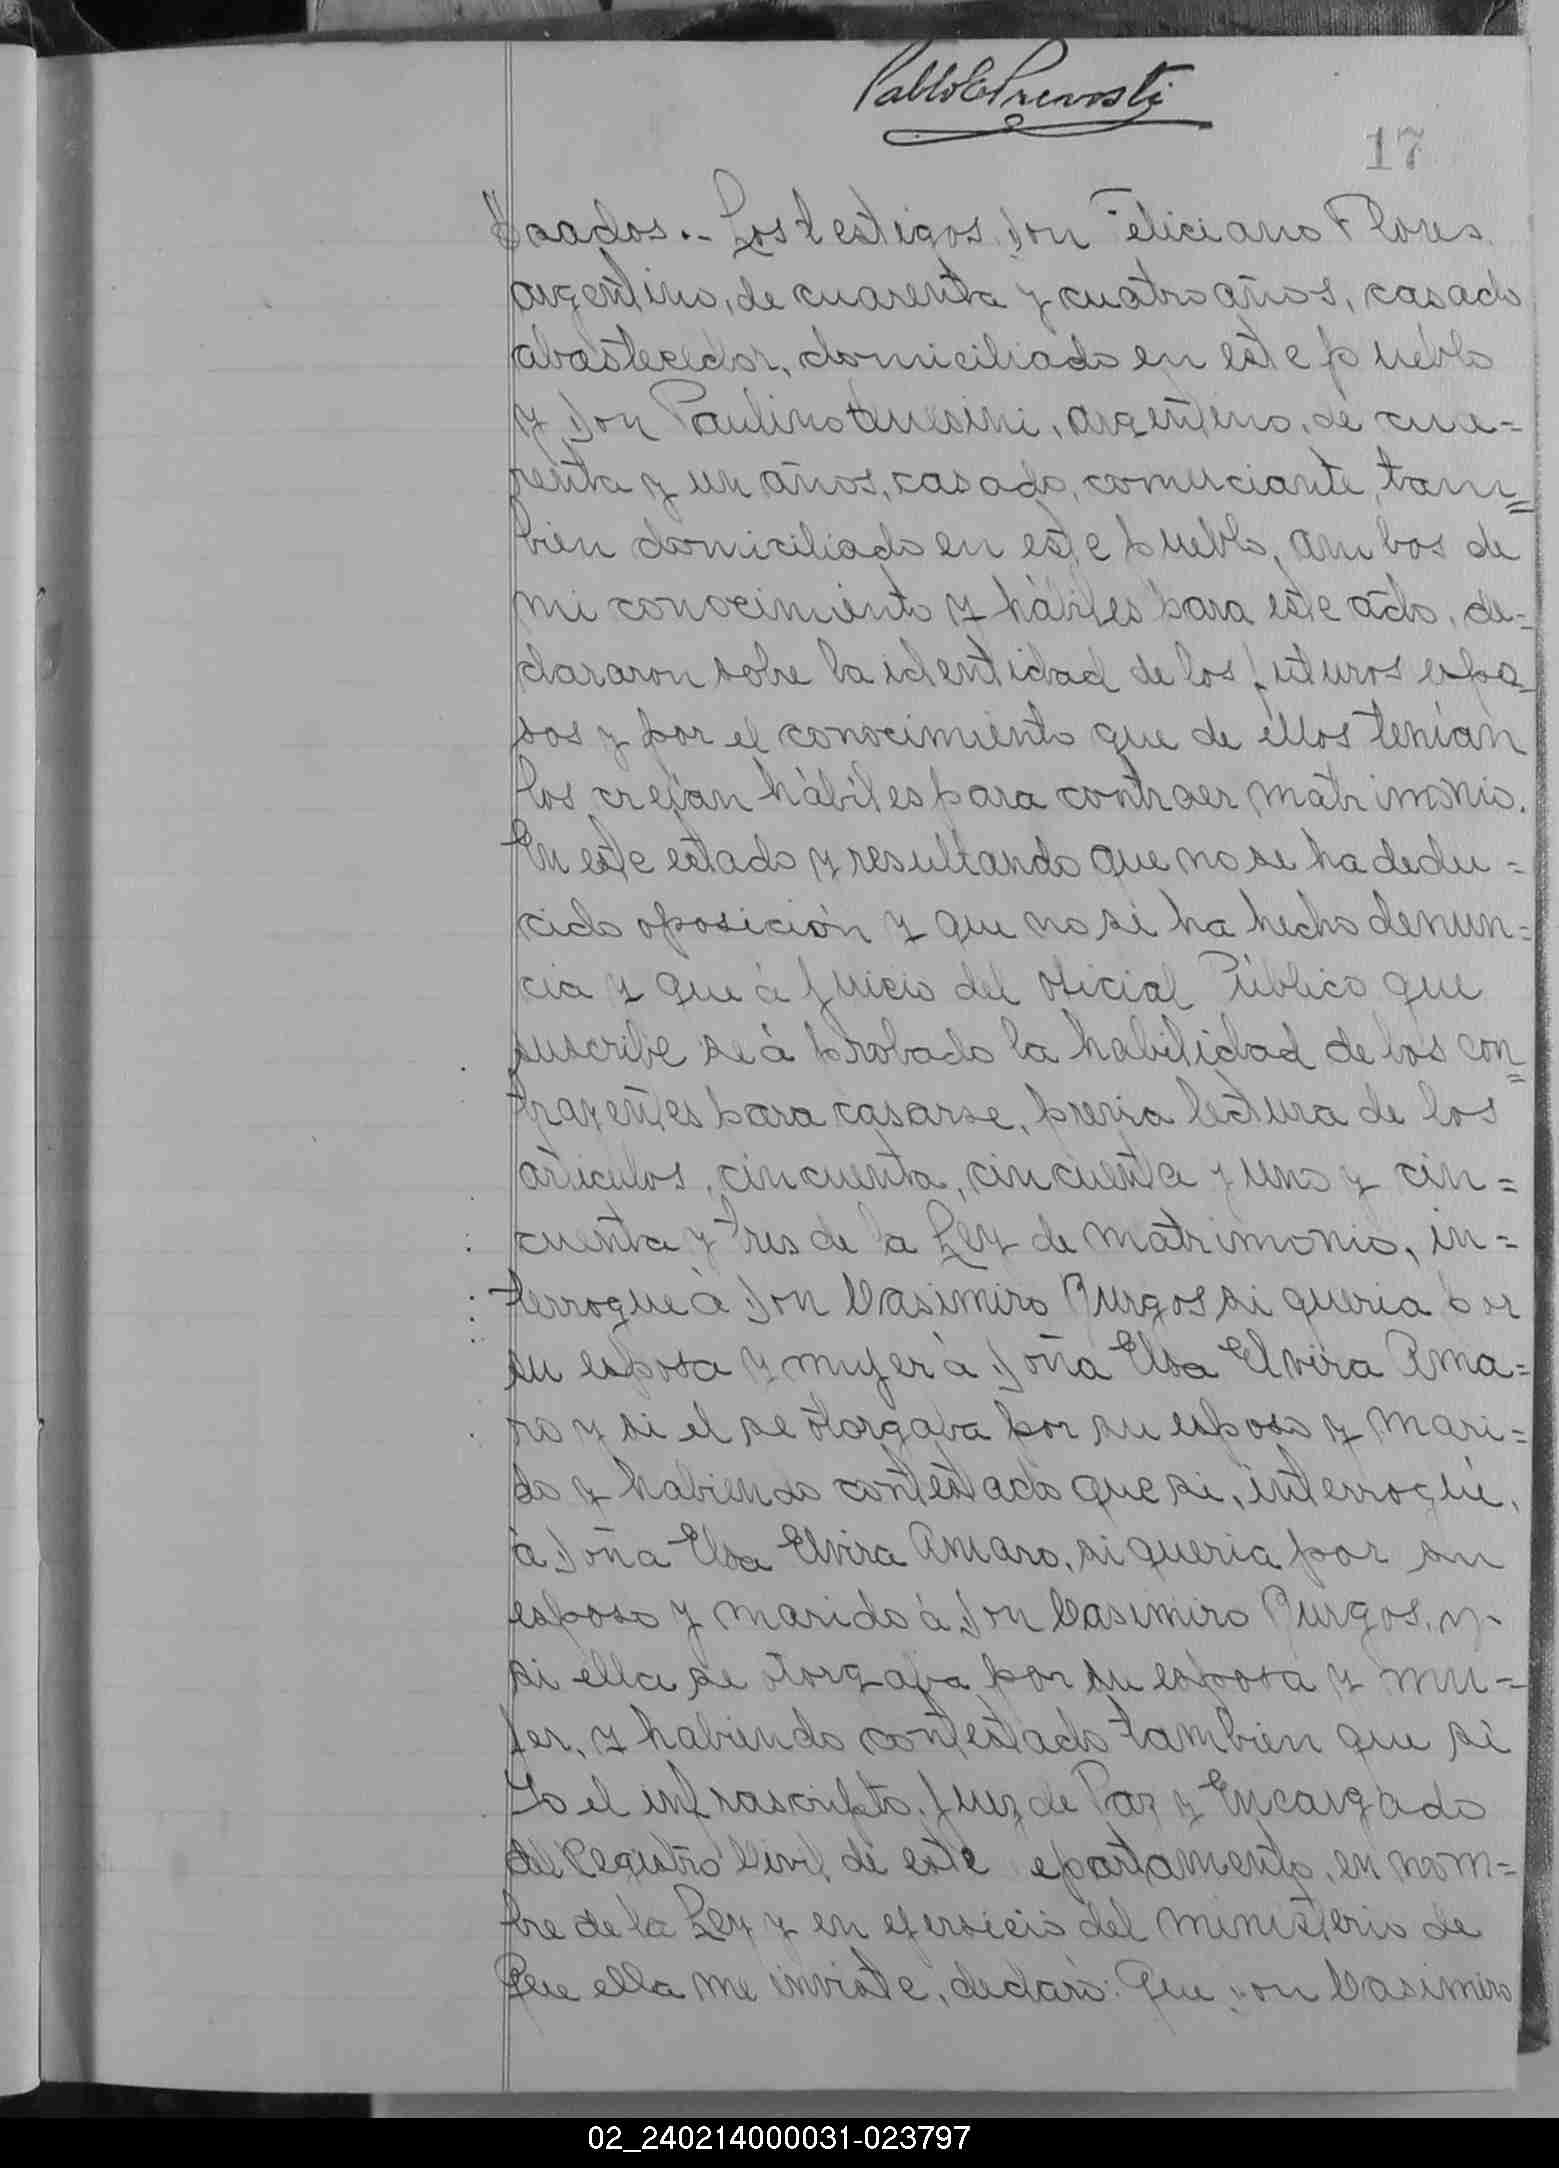 Pablo C Prevosti
17
cados.- Los testigos Don Feliciano Flores
argentino, de cuarenta y cuatro años, casado
abastecedor, domiciliado en este pueblo
y Don Paulino argentino, de cua=
renta y un años, casado, comerciante, tam=
bien domiciliado en este pueblo, ambos de
mi conocimiento y hábiles para este acto, de-
clararon sobre la identidad de los futuros espo=
sos y por el conocimiento que de éllos tenían
los creían hábiles para contraer matrimonio.
En este estado y resultando que no se ha dedu=
cido oposición y que no se ha hecho denun=
cia y que á juicio del oficial Público que
suscribe se á probado la habilidad de los con=
trayentes para casarse, previa lectura de los
articulos, cincuenta, cincuenta y uno y cin=
cuenta y tres de la Ley de matrimonio, in=
terrogue á Don Casimiro Burgos si queria por
su esposa y mujer á Doña Elsa Elvira Ama=
ro y si el se otorgaba por su esposo y mari=
do y habiendo contestado que si, interrogué,
á Doña Elsa Elvira Amaro, si queria por su
esposo y marido á Don Casimiro Burgos, y
si ella se otorgaba por su esposa y mu=
jer, y habiendo contestado tambien que si
Yo el infrascripto, Juez de Paz y Encargado
del Registro Civil de este epartamento, en nom=
bre de la Ley y en ejersicio del ministerio de
que ella me inviste, declaro: Que Don Casimiro
02_240214000031-023797